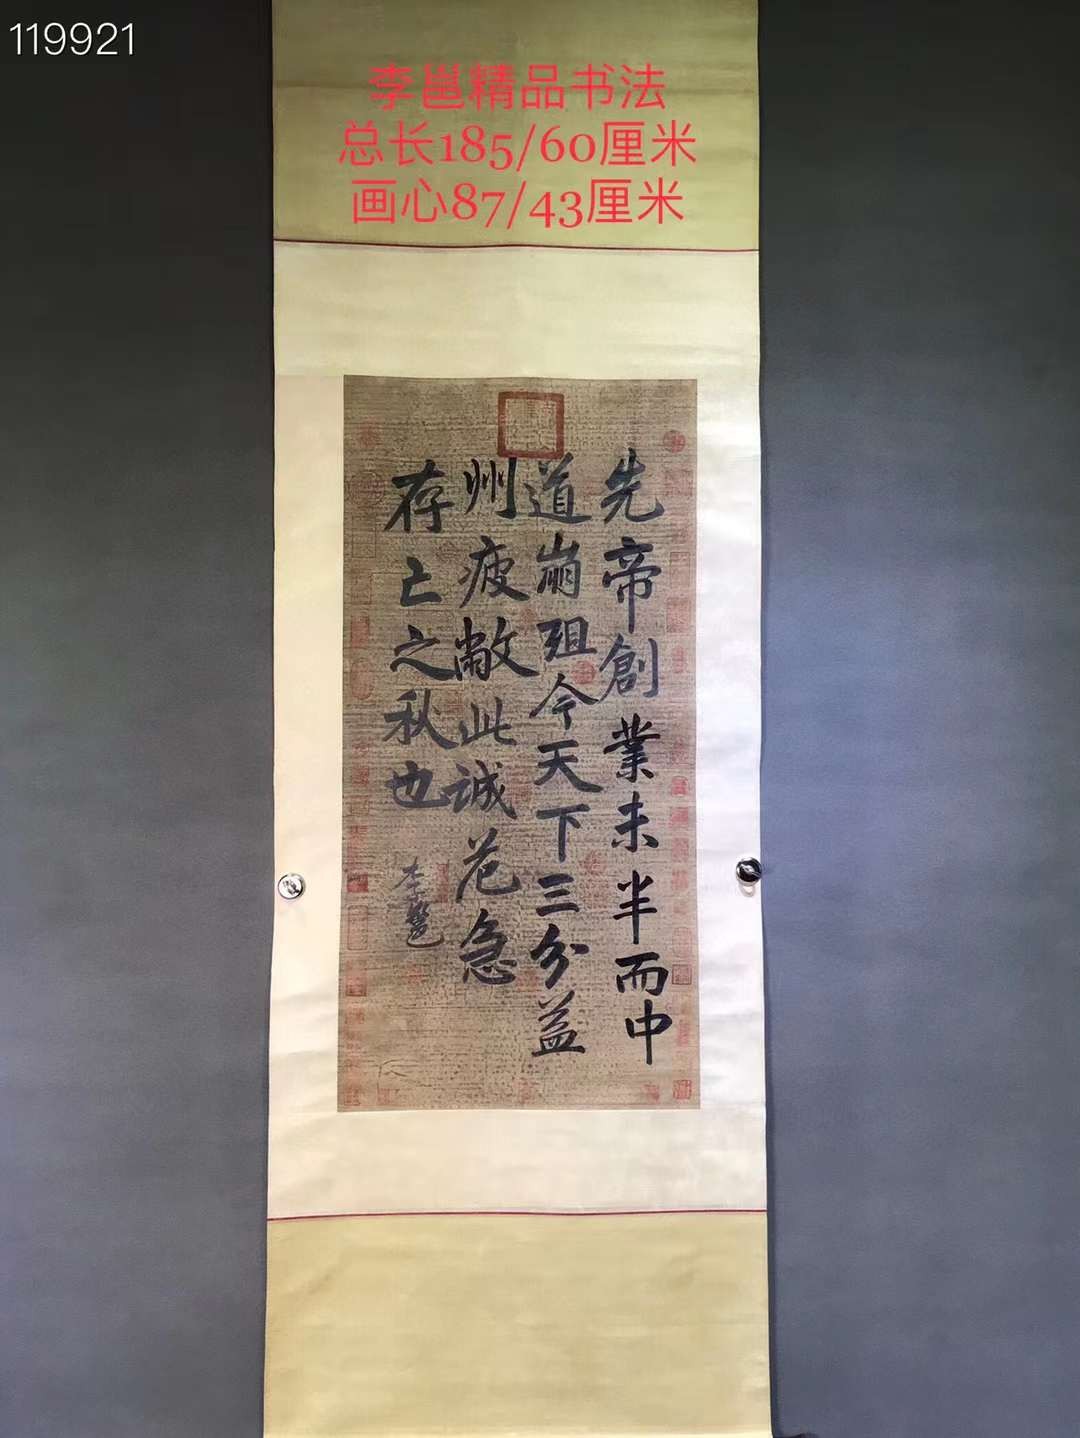 119921
李邕精品书法
总长185/60厘米
画心87/43厘米
先帝創業未半而中
道崩殂今天下三分益
州疲敝此诚危急
存亡之秋也
李邕